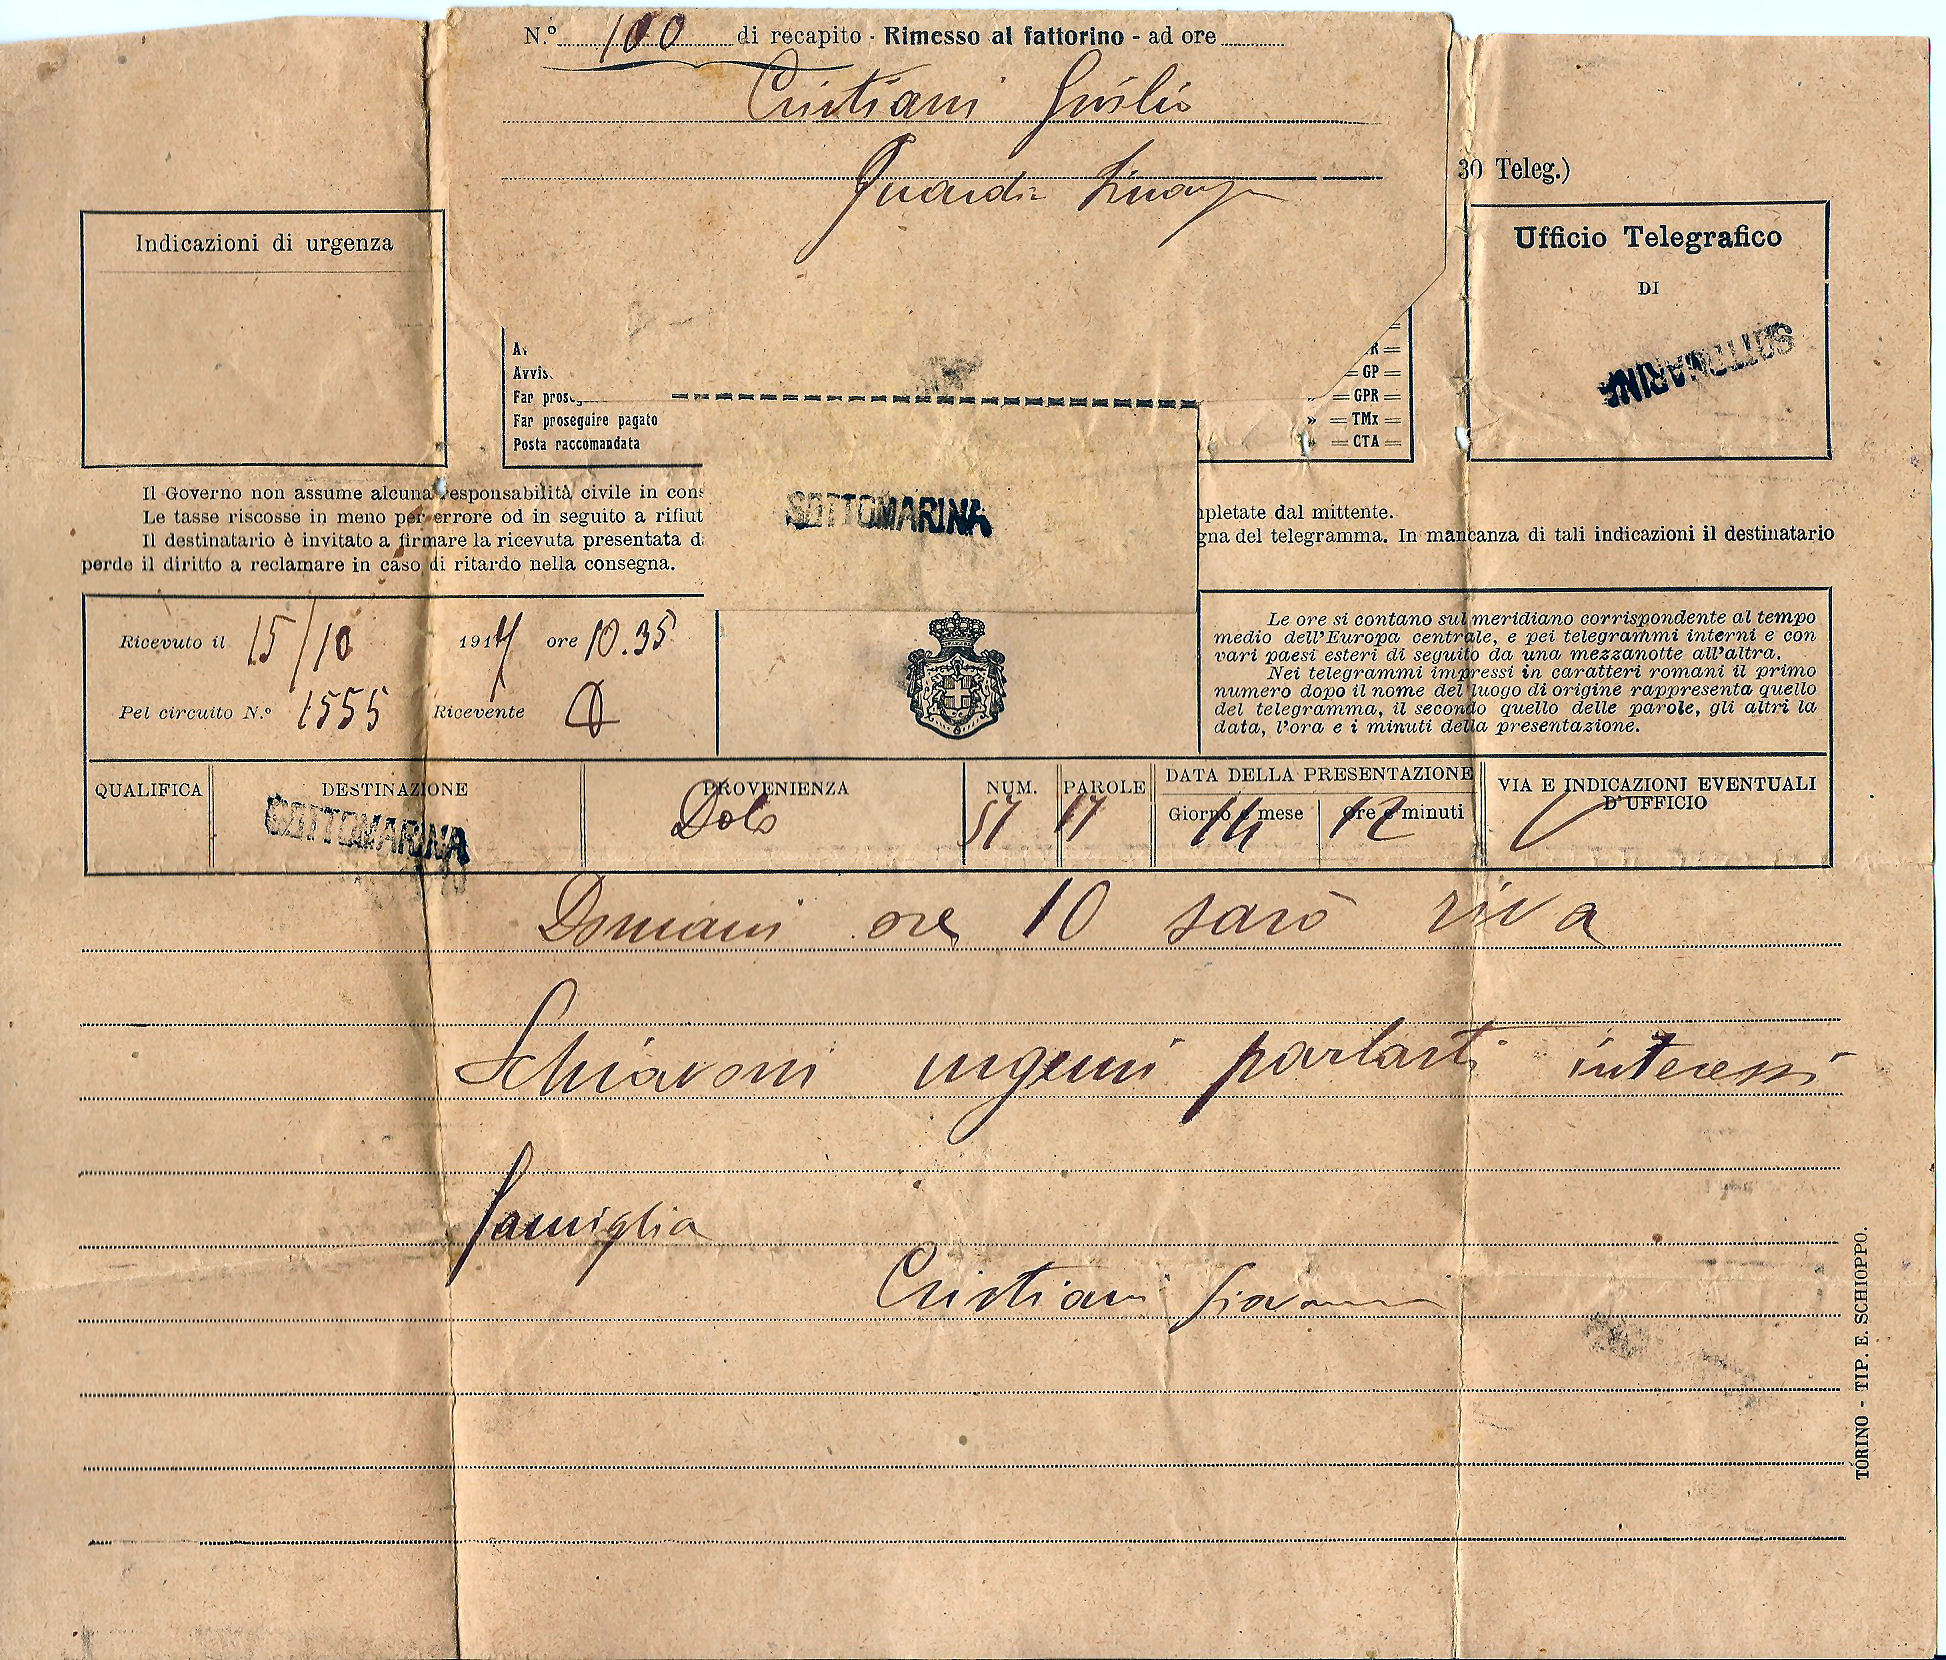 N.º 100 di recapito - Rimesso al fattorino - ad ore
Cristiani Giulio
Guardia Finanza
30 Teleg.)
Indicazioni di urgenza
Ufficio Telegrafico
DI
SOTTOMARINA
Avvis
= GP =
Far proseg
= GPR =
Far proseguire pagato
» = TMx =
Posta raccomandata
» = CTA =
SOTTOMARINA
Il Governo non assume alcuna responsabilità civile in cons
Le tasse riscosse in meno per errore od in seguito a rifiut
mpletate dal mittente.
Il destinatario è invitato a firmare la ricevuta presentata d
gna del telegramma. In mancanza di tali indicazioni il destinatario
perde il diritto a reclamare in caso di ritardo nella consegna.
Ricevuto il 15/10 1914 ore 10.35
Pel circuito N.º 1555 Ricevente
Le ore si contano sul meridiano corrispondente al tempo
medio dell'Europa centrale, e pei telegrammi interni e con
vari paesi esteri di seguito da una mezzanotte all'altra.
Nei telegrammi impressi in caratteri romani il primo
numero dopo il nome del luogo di origine rappresenta quello
del telegramma, il secondo quello delle parole, gli altri la
data, l'ora e i minuti della presentazione.
QUALIFICA
DESTINAZIONE
PROVENIENZA
NUM.
PAROLE
DATA DELLA PRESENTAZIONE
Giorno e mese
Ore e minuti
VIA E INDICAZIONI EVENTUALI
D'UFFICIO
SOTTOMARINA
Dolo
51
17
14
12
Domani ore 10 sarò riva
Schiavoni urgemi parlarti interessi
famiglia
Cristiani Giovanni
TORINO - TIP. E. SCHIOPPO.